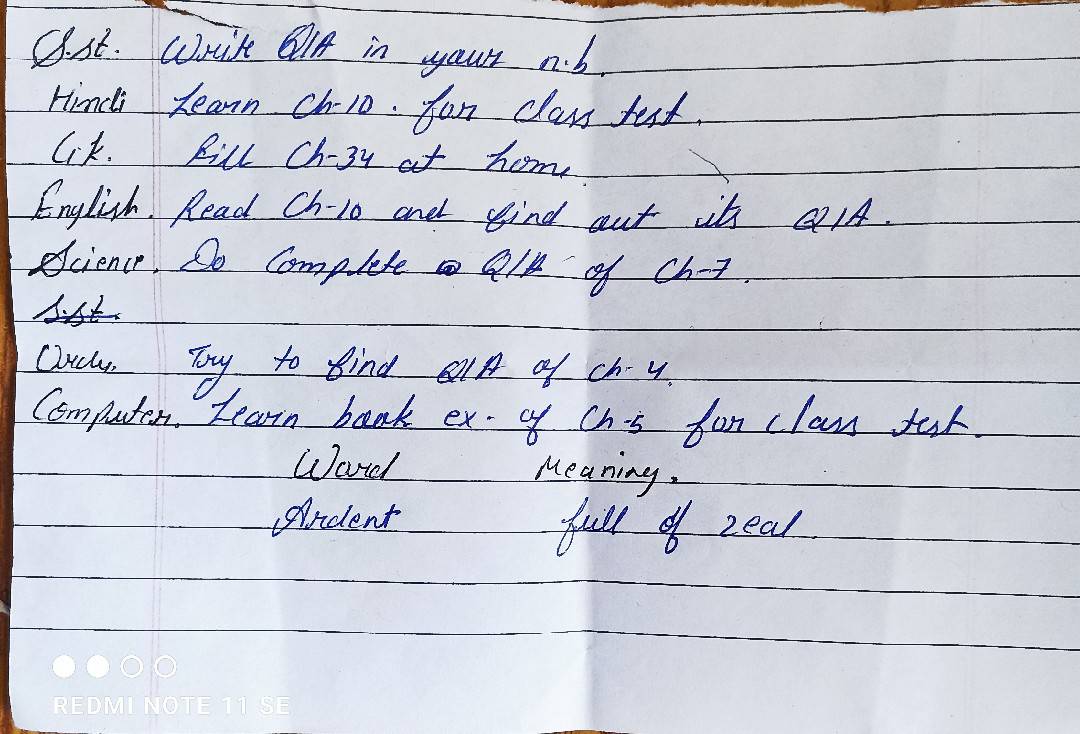 S.st. Write Q/A in your n.b.
Hindi Learn Ch-10. for class test.
G.k. Fill Ch-34 at home.
English. Read Ch-10 and find out its Q/A.
Science. Do Complete Q/A of Ch-7.
S.st.
Urdu. Try to find Q/A of ch-4.
Computer. Learn book ex. of Ch-5 for class test.
Word Meaning.
Ardent full of zeal.
REDMI NOTE 11 SE